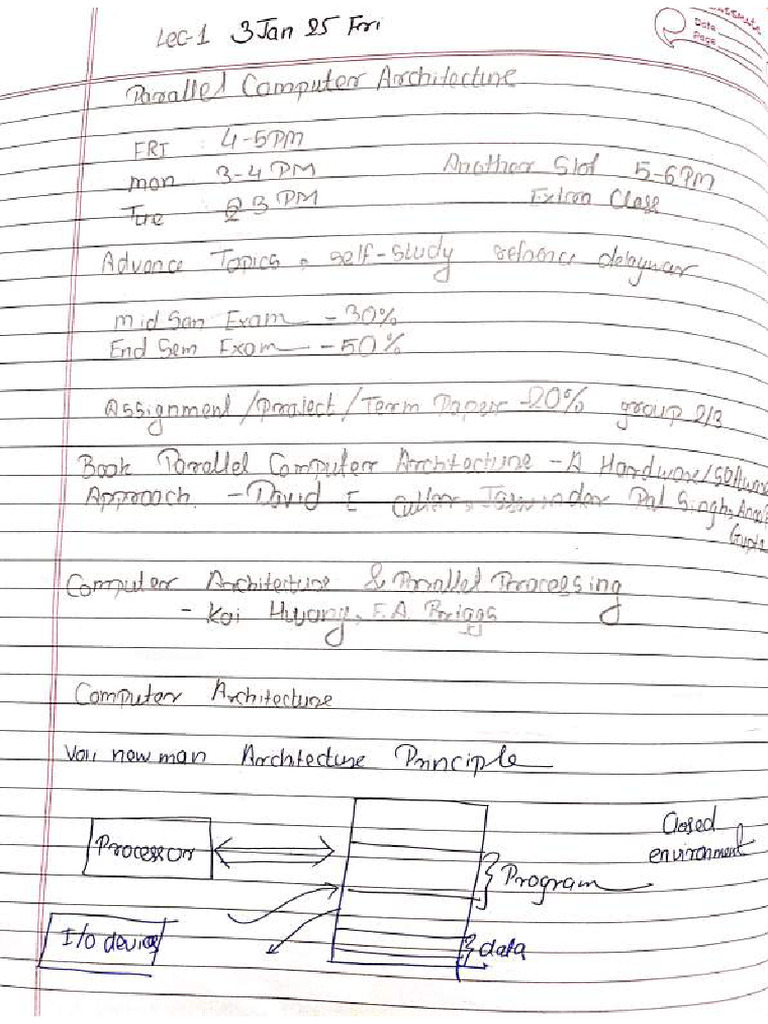 Lec-1 3 Jan 25 Fri
Date
Page
Parallel Computer Architecture
FRI : 4-5PM
mon 3-4 PM Another Slot 5-6PM
Tue 2 3 PM Extra Class
Advance Topics. self-study
Mid Sem Exam - 30%
End Sem Exam - 50%
Assignment/Project/Term Paper - 20% group 2/3
Book Parallel Computer Architecture - A Hardware/Software
Approach. - David E Culler, Jaswinder Pal Singh, Anoop
Gupta
Computer Architecture & Parallel Processing
- Kai Hwang, F.A. Briggs
Computer Architecture
Von newman Architecture Principle
Closed
environment
Processor
Program
I/o device
data